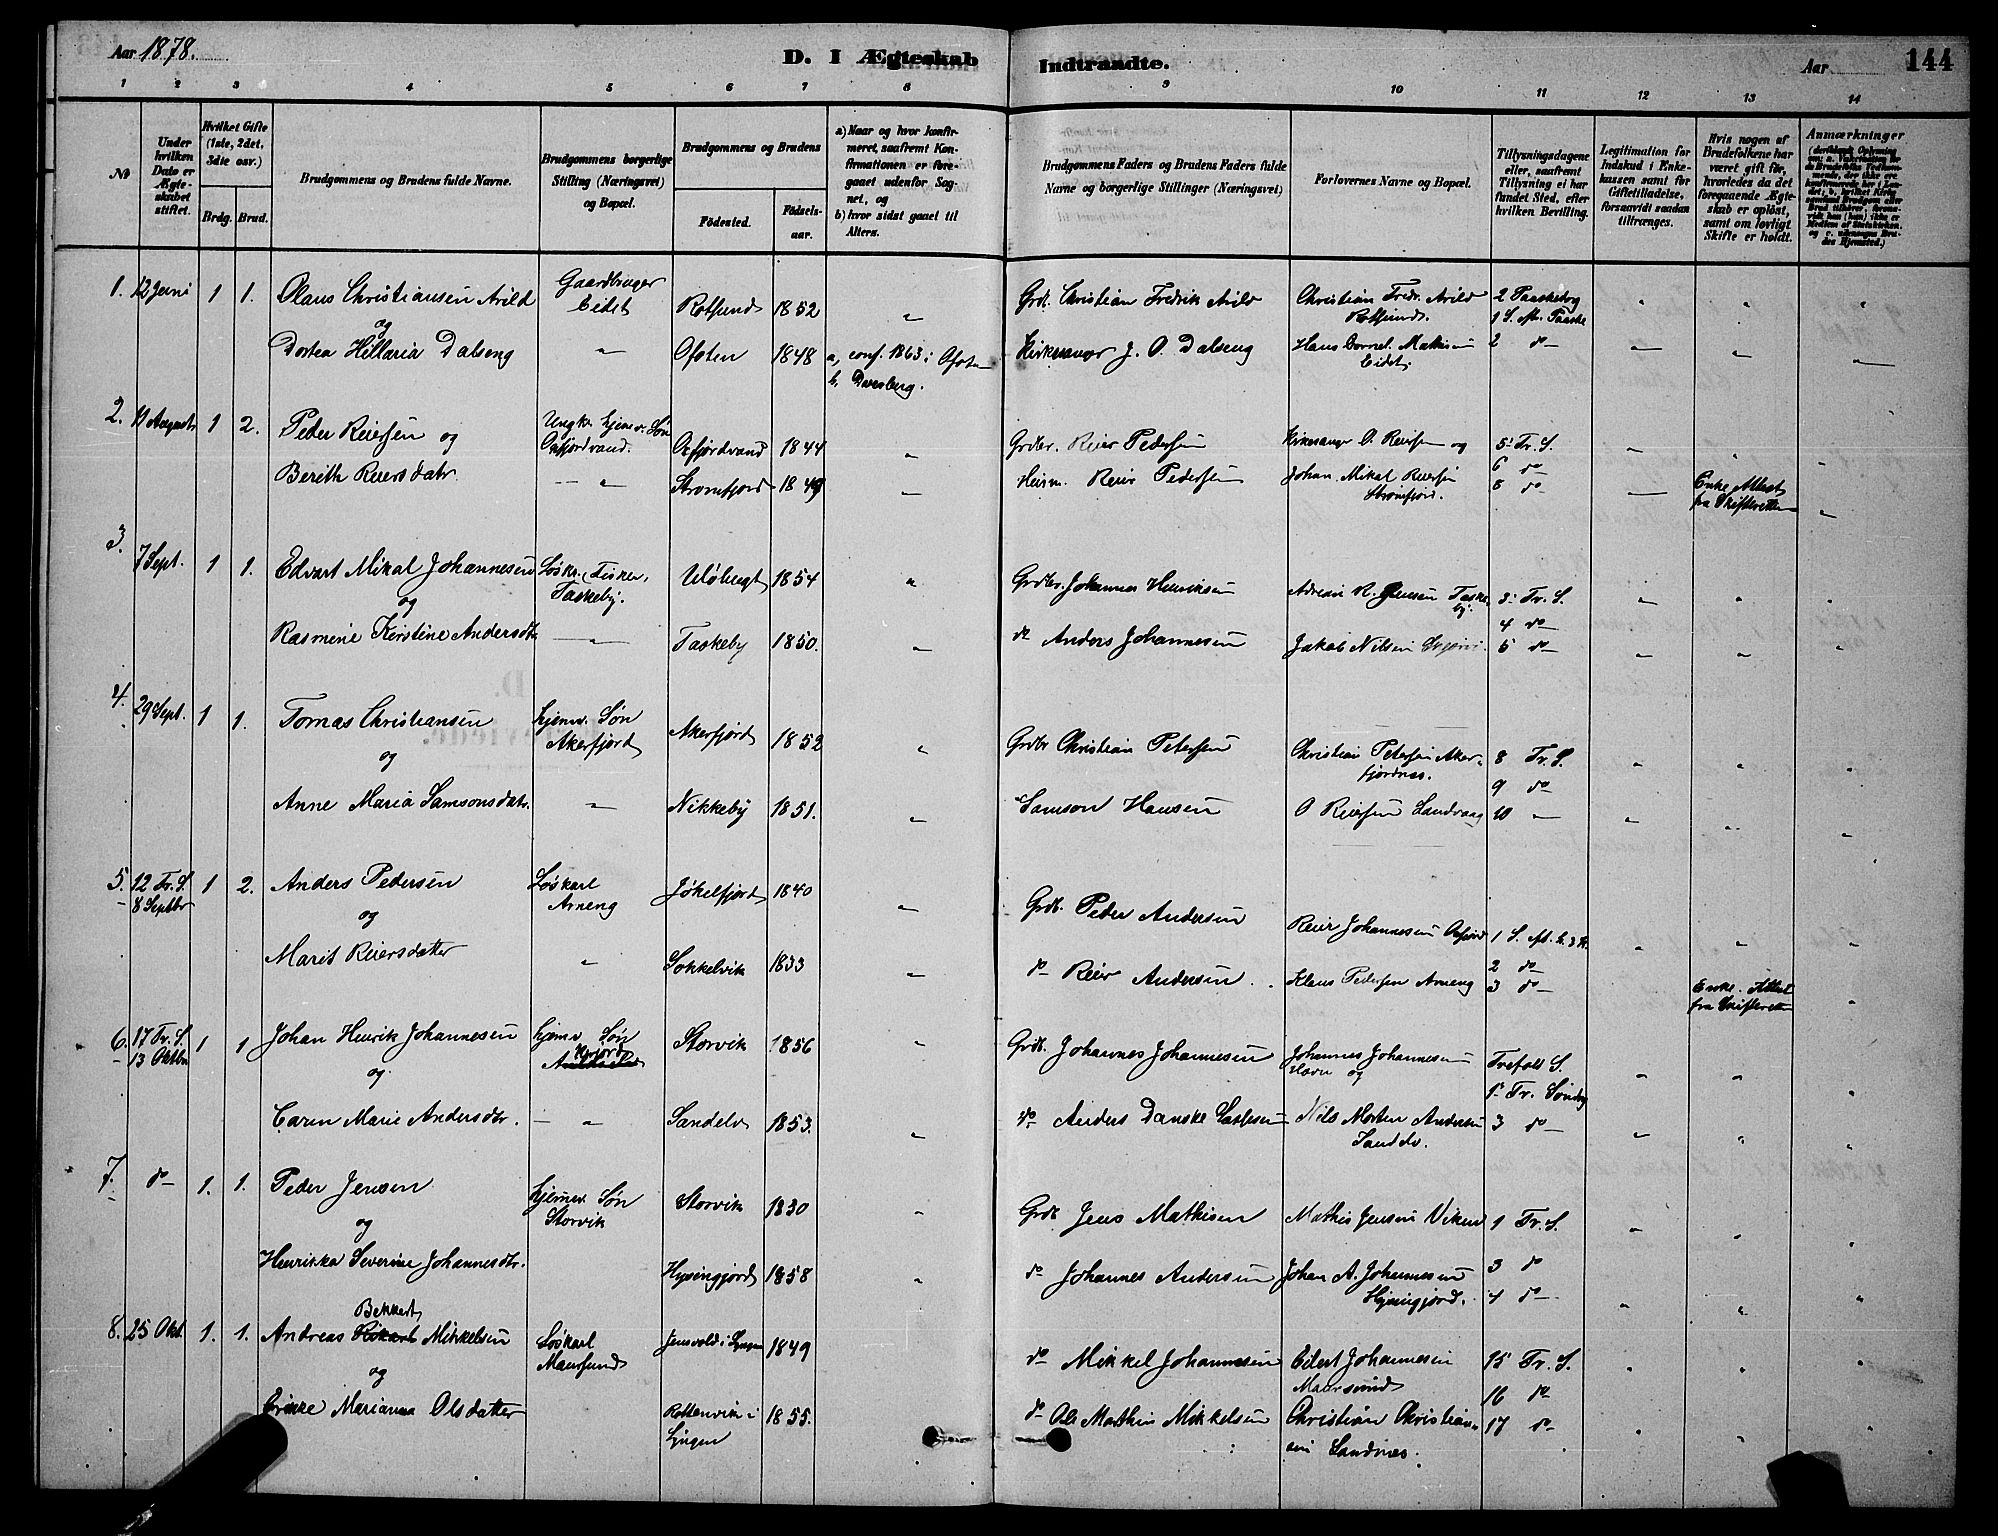 Aar 1878.
D. I Ægteskab Indtrandte.
Aar
144
1 2 3 4 5 6 7 8 9 10 11 12 13 14
No
Under hvilken Dato er Ægteskabet stiftet.
Hvilket Gifte (1ste, 2det, 3die osv.)
Brdg. Brud.
Brudgommens og Brudens fulde Navne.
Brudgommens borgerlige Stilling (Næringsvei) og Bopæl.
Brudgommens og Brudens
Födested. Födselsaar.
a) Naar og hvor konfirmeret, saafremt Konfirmationen er foregaaet udenfor Sognet, og
b) hvor sidst gaaet til Alters.
Brudgommens Faders og Brudens Faders fulde Navne og borgerlige Stillinger (Næringsvei)
Forlovernes Navne og Bopæl.
Tillysningsdagene eller, saafremt Tillysning ei har fundet Sted, efter hvilken Bevilling.
Legitimation for Indskud i Enkekassen samt for Giftetilladelse, forsaavidt saadan tiltrænges.
Hvis nogen af Brudefolkene har været gift før, hvorledes da det foregaaende Ægteskab er oplöst, samt om lovligt Skifte er holdt.
Anmærkninger
1. 12 Juni 1 1. Olaus Christiansen Arild Gaardbruger Eidet Rotsund 1852 " Grdb. Christian Fredrik Arild Christian Fredr. Arild Rotsund. 2 Paaskedag 1 S. eft. Paaske " " "
og
Dortea Hillaria Dalseng " Ofoten 1848 a, conf. 1863 i Ofoten b. Kirkesanger J. O. Dalseng Hans Mathisen Eidet 2 do " " "
2. 11 August 1 2. Peder Reiersen og Ungk. hjemv. Søn Oxfjordvand. Oxfjordvand 1844 " Grdbr. Reier Pedersen Kirkesanger O. Reiersen og 5 Tr. S. " "
Berith Reiersdatr. " Stromfjord 1849 " Reier Pedersen Johan Mikal Reiersen Strømfjord. 6 do 8 do " Enke Attest fra Skifteretten "
3. 7 Sept. 1 1. Edvart Mikal Johannesen Løsk. Fisker, Taskeby. Uløbugt 1854 " Grdbr. Johannes Henriksen Adrian R. Jensen Taskeby. 3 Tr. S. " " "
og 4 do
Rasmine Kirstine Andersdtr. " Taskeby 1850. " do Anders Johannesen Jakob Nilsen 5 do " " "
4. 29 Sept. 1 1. Tomas Christiansen hjemv. Søn Akerfjord Akerfjord 1852 " Grdbr Christian Petersen Christian Petersen Akerfjordnes. 8 Tr. S. " " "
og 9 do
Anne Maria Samsonsdatr. " Nikkeby 1851. " Samson Hansen O Reiersen Landvaag 10 " " " "
5. 12 Tr. S. 8 Septbr 1 2. Anders Pedersen Løskarl Arneng Jökelfjord 1840 " Grdb. Peder Andersen Reier Johannesen 1 S. " " "
og
Marit Reiersdatter " Sokkelvik 1833 " do Reier Andersen Klaus Pedersen Arneng 2 do 3 do Enke. Attest fra Skifteretten "
6. 17 Tr. S. 13 Oktbr 1 1 Johan Henrik Johannesen hjemv. Søn Storvik 1856 " Grdb. Johannes Johannesen Johannes Johannesen Havn og Trefold. S. " " "
og 1 Tr. Söndag
Caren Marie Andersdtr. " Sandelv 1853. " do Anders Danske Larssen Nils Morten Andersen Sandelv. 3 do " " "
7. do 1. 1. Peder Jensen hjemv. Søn Storvik Storvik 1830 " Grdb Jens Mathisen Mathis Jensen Viken 1 Tr. S. "
og
Henrikka Severine Johannesdtr. Hysingjord 1858 " do Johannes Andersen Johan A. Johannesen Hysingjord. 3 do 4 do " " "
8. 25 Okt. 1. 1. Andreas Bekkert Mikkelsen Løskarl Maursund Jensvold i Lyngen 1849 do Mikkel Johannesen Eilert Johannesen Maursund 15 Tr. S. " " "
og 16 do
Marianna Olsdatter Rottenvik i Lyngen 1855. do Ole Mathin Mikkelsen Christian Christiansen Landnes. 17 do " " "